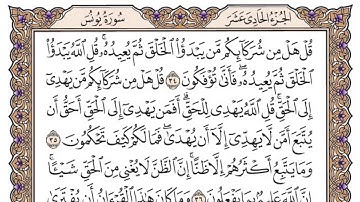 سُورَةُ يُونُسَ الجُزْءُ الحَادِىَ عَشَرَ
قُلْ هَلْ مِن شُرَكَآئِكُم مَّن يَبْدَؤُا۟ ٱلْخَلْقَ ثُمَّ يُعِيدُهُۥ ۚ قُلِ ٱللَّهُ يَبْدَؤُا۟
ٱلْخَلْقَ ثُمَّ يُعِيدُهُۥ ۖ فَأَنَّىٰ تُؤْفَكُونَ ٣٤ قُلْ هَلْ مِن شُرَكَآئِكُم مَّن يَهْدِىٓ
إِلَى ٱلْحَقِّ ۚ قُلِ ٱللَّهُ يَهْدِى لِلْحَقِّ ۗ أَفَمَن يَهْدِىٓ إِلَى ٱلْحَقِّ أَحَقُّ أَن
يُتَّبَعَ أَمَّن لَّا يَهِدِّىٓ إِلَّآ أَن يُهْدَىٰ ۖ فَمَا لَكُمْ كَيْفَ تَحْكُمُونَ ٣٥
وَمَا يَتَّبِعُ أَكْثَرُهُمْ إِلَّا ظَنًّا ۚ إِنَّ ٱلظَّنَّ لَا يُغْنِى مِنَ ٱلْحَقِّ شَيْـًٔا ۚ
إِنَّ ٱللَّهَ عَلِيمٌۢ بِمَا يَفْعَلُونَ ٣٦ وَمَا كَانَ هَٰذَا ٱلْقُرْءَانُ أَن يُفْتَرَىٰ